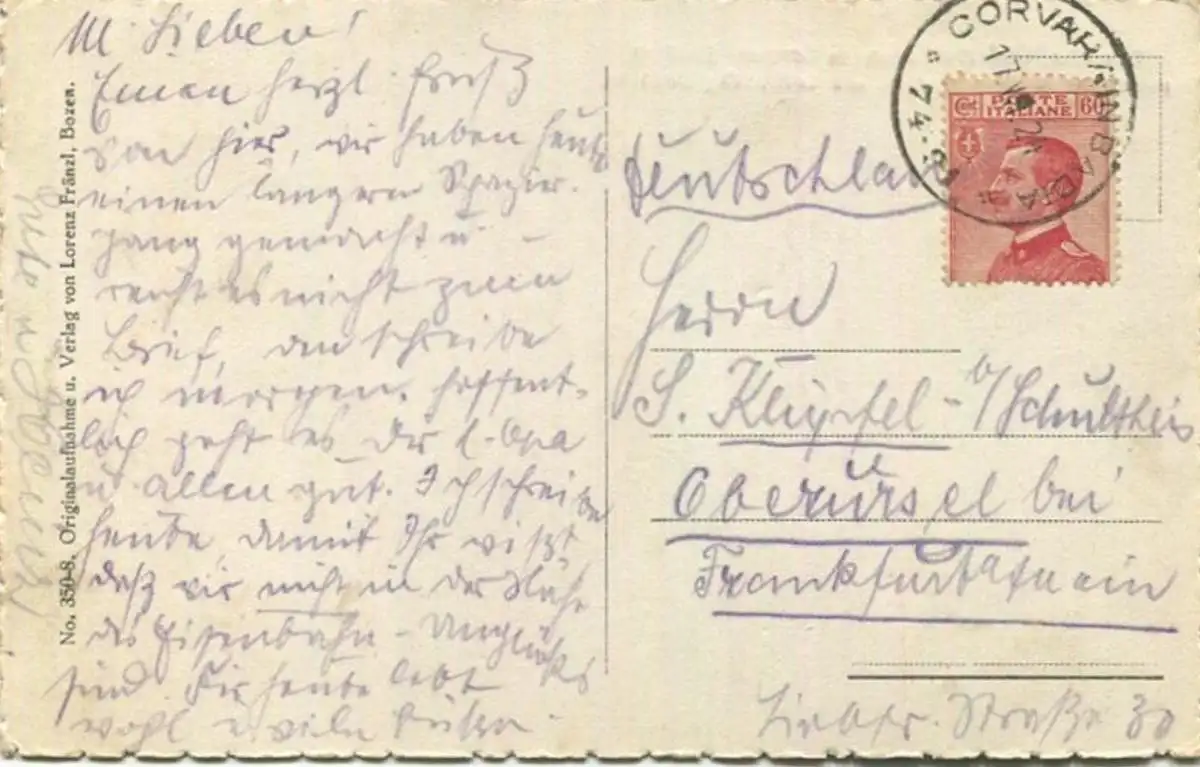 M. Lieben!
Einen herzl Gruß
von hier, wir haben heute
einen längeren Spazier-
gang gemacht u
reicht es nicht zum
Brief, den schreibe
ich morgen. Hoffent-
lich geht es Dir l. Opa
u allen gut. Ich schreibe
heute, damit Ihr wißt,
daß wir nicht in der Nähe
des Eisenbahn-Unglücks
sind. Für heute lebt
wohl u viele
No. 350-8. Originalaufnahme u. Verlag von Lorenz Fränzl, Bozen.
CORVARA IN BADIA
74
POSTE
ITALIANE
Cent 60
Deutschland
Herrn
S. Klüpfel - b/ Schultheis
Oberursel bei
Frankfurt a Main
Straße 30